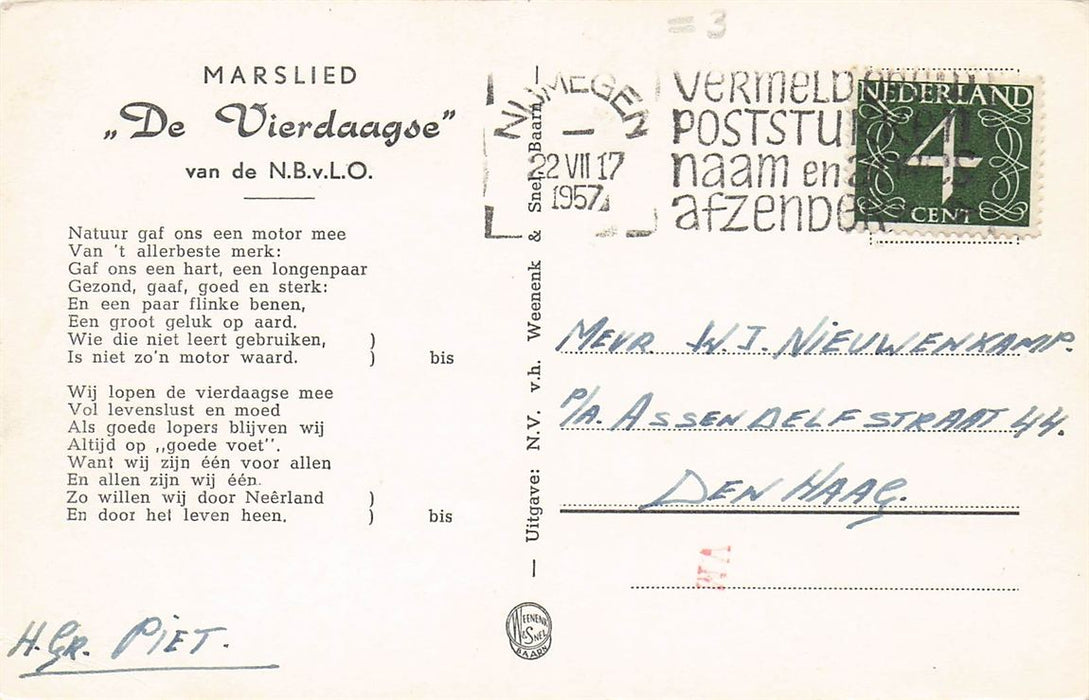 MARSLIED
„De Vierdaagse”
van de N.B.v.L.O.
Natuur gaf ons een motor mee
Van 't allerbeste merk:
Gaf ons een hart, een longenpaar
Gezond, gaaf, goed en sterk:
En een paar flinke benen,
Een groot geluk op aard.
Wie die niet leert gebruiken, )
Is niet zo'n motor waard. ) bis
Wij lopen de vierdaagse mee
Vol levenslust en moed
Als goede lopers blijven wij
Altijd op ,,goede voet''.
Want wij zijn één voor allen
En allen zijn wij één.
Zo willen wij door Neêrland )
En door het leven heen. ) bis
H. Gr. PIET.
— Uitgave: N.V. v.h. Weenenk & Snel, Baarn —
WEENENK
& SNEL
BAARN
= 3
NIJMEGEN
22 VII 17
1957
VERMELD
POSTSTUKKEN
naam en
afzender
NEDERLAND
4
CENT
MEVR W. J. NIEUWENKAMP.
P/A. ASSENDELFSTRAAT 44.
DEN HAAG.